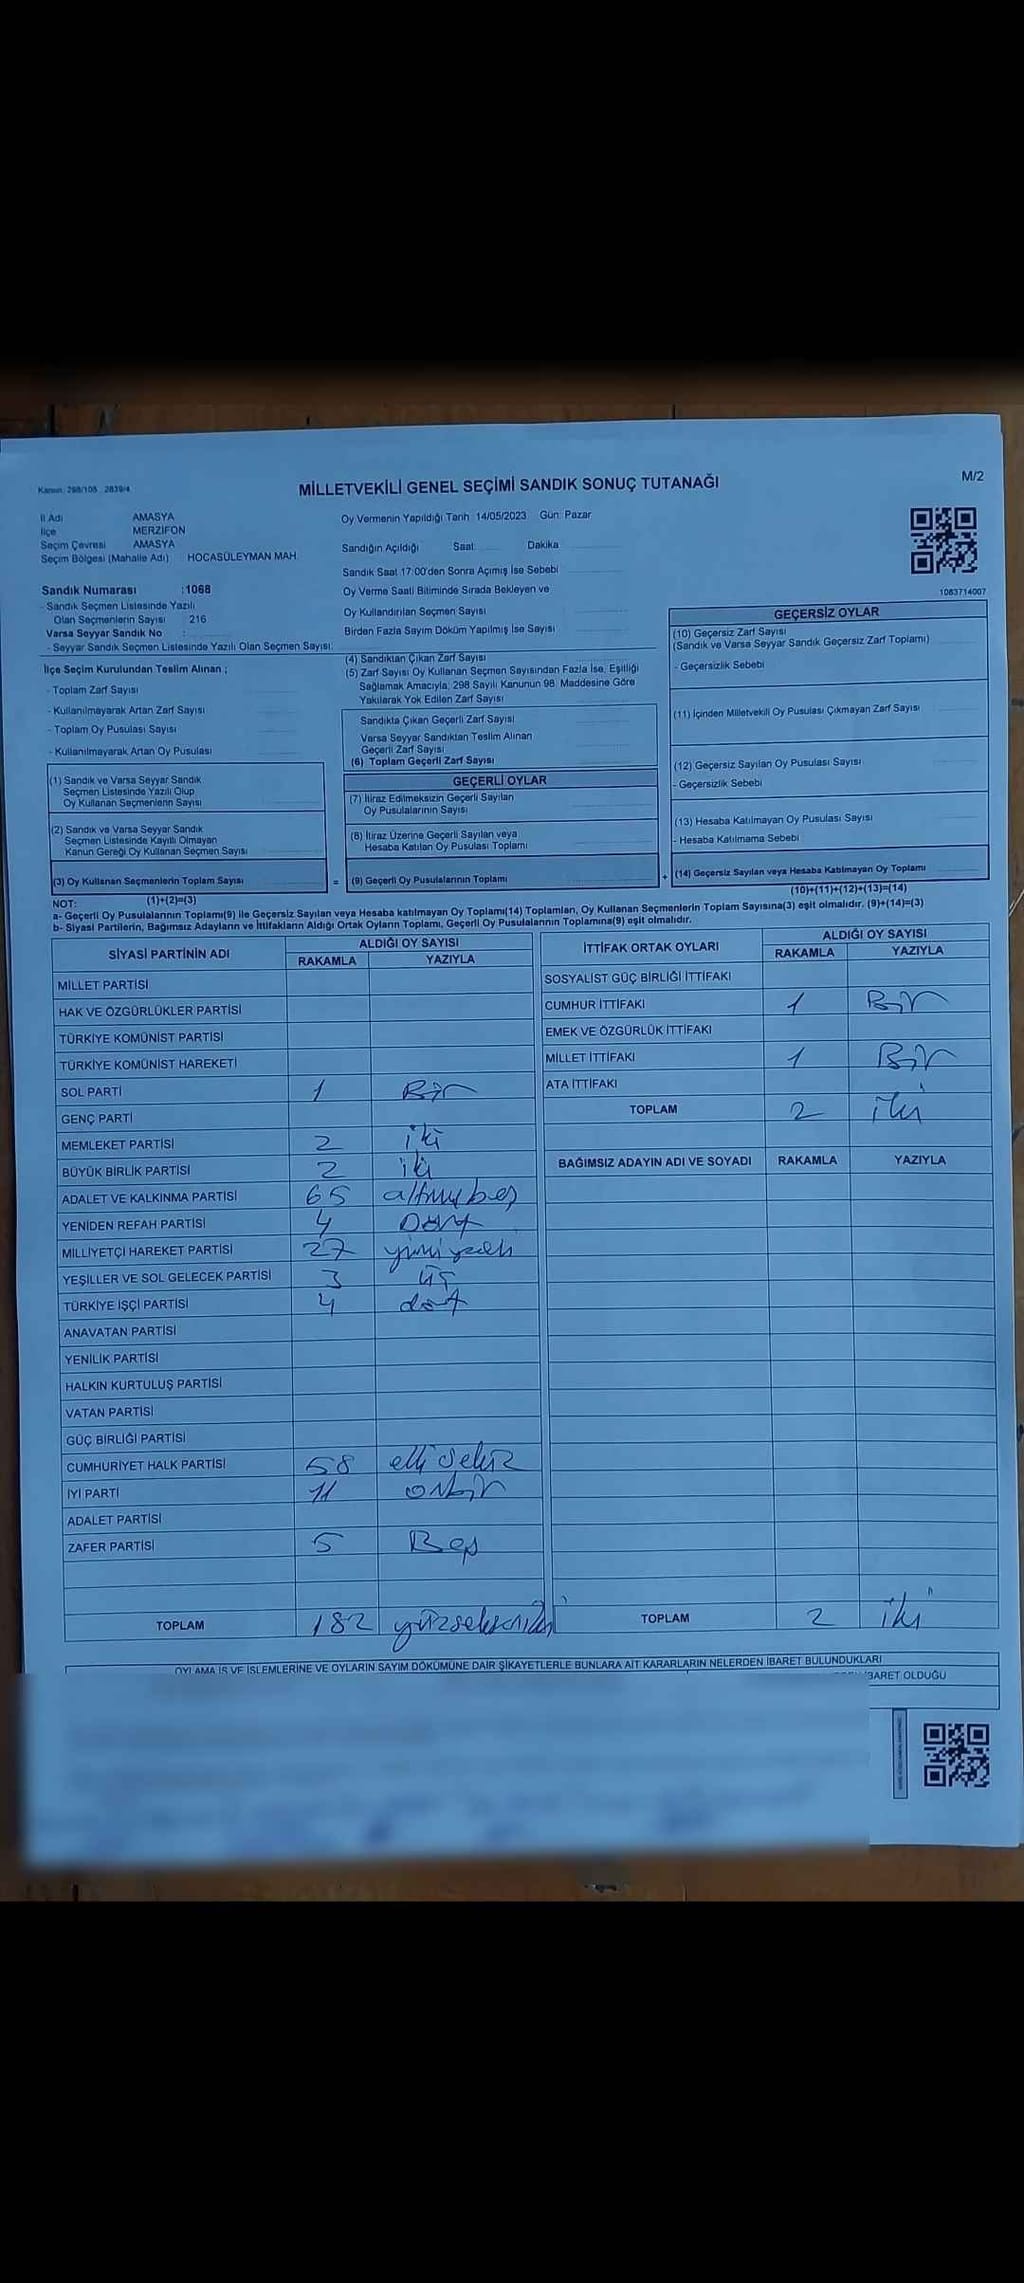 Kanun: 298/105 , 2839/4
MİLLETVEKİLİ GENEL SEÇİMİ SANDIK SONUÇ TUTANAĞI
M/2
İl Adı AMASYA
İlçe MERZİFON
Seçim Çevresi AMASYA
Seçim Bölgesi (Mahalle Adı) HOCASÜLEYMAN MAH.
Sandık Numarası :1068
- Sandık Seçmen Listesinde Yazılı
Olan Seçmenlerin Sayısı 216
Varsa Seyyar Sandık No :
- Seyyar Sandık Seçmen Listesinde Yazılı Olan Seçmen Sayısı:
Oy Vermenin Yapıldığı Tarih: 14/05/2023 Gün: Pazar
Sandığın Açıldığı Saat: Dakika
Sandık Saat 17:00'den Sonra Açımış İse Sebebi
Oy Verme Saati Bitiminde Sırada Bekleyen ve
Oy Kullandırılan Seçmen Sayısı
Birden Fazla Sayım Döküm Yapılmış İse Sayısı
1083714007
İlçe Seçim Kurulundan Teslim Alınan ;
- Toplam Zarf Sayısı
- Kullanılmayarak Artan Zarf Sayısı
- Toplam Oy Pusulası Sayısı
- Kullanılmayarak Artan Oy Pusulası
(1) Sandık ve Varsa Seyyar Sandık
Seçmen Listesinde Yazılı Olup
Oy Kullanan Seçmenlerin Sayısı
(2) Sandık ve Varsa Seyyar Sandık
Seçmen Listesinde Kayıtlı Olmayan
Kanun Gereği Oy Kullanan Seçmen Sayısı
(3) Oy Kullanan Seçmenlerin Toplam Sayısı
(1)+(2)=(3)
(4) Sandıktan Çıkan Zarf Sayısı
(5) Zarf Sayısı Oy Kullanan Seçmen Sayısından Fazla İse, Eşitliği
Sağlamak Amacıyla, 298 Sayılı Kanunun 98. Maddesine Göre
Yakılarak Yok Edilen Zarf Sayısı
Sandıkta Çıkan Geçerli Zarf Sayısı
Varsa Seyyar Sandıktan Teslim Alınan
Geçerli Zarf Sayısı
(6) Toplam Geçerli Zarf Sayısı
=
GEÇERLİ OYLAR
(7) İtiraz Edilmeksizin Geçerli Sayılan
Oy Pusulalarının Sayısı
(8) İtiraz Üzerine Geçerli Sayılan veya
Hesaba Katılan Oy Pusulası Toplamı
(9) Geçerli Oy Pusulalarının Toplamı
+
GEÇERSİZ OYLAR
(10) Geçersiz Zarf Sayısı
(Sandık ve Varsa Seyyar Sandık Geçersiz Zarf Toplamı)
- Geçersizlik Sebebi
(11) İçinden Milletvekili Oy Pusulası Çıkmayan Zarf Sayısı
(12) Geçersiz Sayılan Oy Pusulası Sayısı
- Geçersizlik Sebebi
(13) Hesaba Katılmayan Oy Pusulası Sayısı
- Hesaba Katılmama Sebebi
(14) Geçersiz Sayılan veya Hesaba Katılmayan Oy Toplamı
(10)+(11)+(12)+(13)=(14)
NOT:
a- Geçerli Oy Pusulalarının Toplamı(9) ile Geçersiz Sayılan veya Hesaba katılmayan Oy Toplamı(14) Toplamları, Oy Kullanan Seçmenlerin Toplam Sayısına(3) eşit olmalıdır. (9)+(14)=(3)
b- Siyasi Partilerin, Bağımsız Adayların ve İttifakların Aldığı Ortak Oyların Toplamı, Geçerli Oy Pusulalarının Toplamına(9) eşit olmalıdır.
SİYASİ PARTİNİN ADI ALDIĞI OY SAYISI
RAKAMLA YAZIYLA
MİLLET PARTİSİ
HAK VE ÖZGÜRLÜKLER PARTİSİ
TÜRKİYE KOMÜNİST PARTİSİ
TÜRKİYE KOMÜNİST HAREKETİ
SOL PARTİ 1 Bir
GENÇ PARTİ
MEMLEKET PARTİSİ 2 iki
BÜYÜK BİRLİK PARTİSİ 2 iki
ADALET VE KALKINMA PARTİSİ 65 altmışbeş
YENİDEN REFAH PARTİSİ 4 Dört
MİLLİYETÇİ HAREKET PARTİSİ 27 yirmiyedi
YEŞİLLER VE SOL GELECEK PARTİSİ 3 üç
TÜRKİYE İŞÇİ PARTİSİ 4 dört
ANAVATAN PARTİSİ
YENİLİK PARTİSİ
HALKIN KURTULUŞ PARTİSİ
VATAN PARTİSİ
GÜÇ BİRLİĞİ PARTİSİ
CUMHURİYET HALK PARTİSİ 58 elli sekiz
İYİ PARTİ 11 onbir
ADALET PARTİSİ
ZAFER PARTİSİ 5 Beş
TOPLAM 182 yüzsekseniki
İTTİFAK ORTAK OYLARI ALDIĞI OY SAYISI
RAKAMLA YAZIYLA
SOSYALİST GÜÇ BİRLİĞİ İTTİFAKI
CUMHUR İTTİFAKI 1 Bir
EMEK VE ÖZGÜRLÜK İTTİFAKI
MİLLET İTTİFAKI 1 Bir
ATA İTTİFAKI
TOPLAM 2 iki
BAĞIMSIZ ADAYIN ADI VE SOYADI RAKAMLA YAZIYLA
TOPLAM 2 iki
OYLAMA İŞ VE İŞLEMLERİNE VE OYLARIN SAYIM DÖKÜMÜNE DAİR ŞİKAYETLERLE BUNLARA AİT KARARLARIN NELERDEN İBARET BULUNDUKLARI
İBARET OLDUĞU